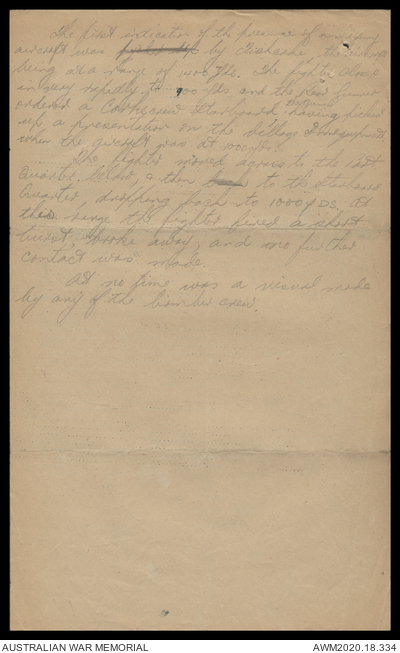 The first indication of the presence of an enemy
aircraft was by Fishpond, the range
being at a range of 1400 yds. The fighter closed
in very rapidly to 900 yds and the Rear Gunner
ordered a Corkscrew Starboard having picked
up a presentation on the Village Inn equipment
when the aircraft was at
The fighter moved across to the Port
Quarter below, & then to the Starboard
Quarter, dropping back to 1000 yds. At
this range the fighter fired a short
burst, broke away, and no further
contact was made.
At no time was a visual made
by any of the bomber crew.
AUSTRALIAN WAR MEMORIAL
AWM2020.18.334